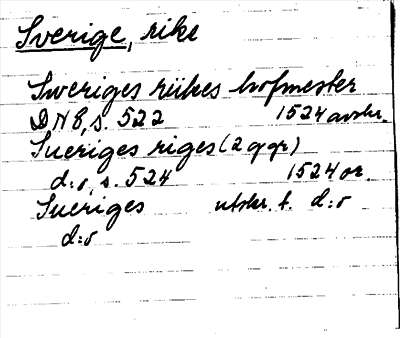 Sverige, rike
Sweriges rükes hofmester
DN 8, s. 522 1524 avskr.
Sueriges riges (2 ggr)
d:o, s. 524 1524 or.
Sueriges utskr. t. d:o
d:o